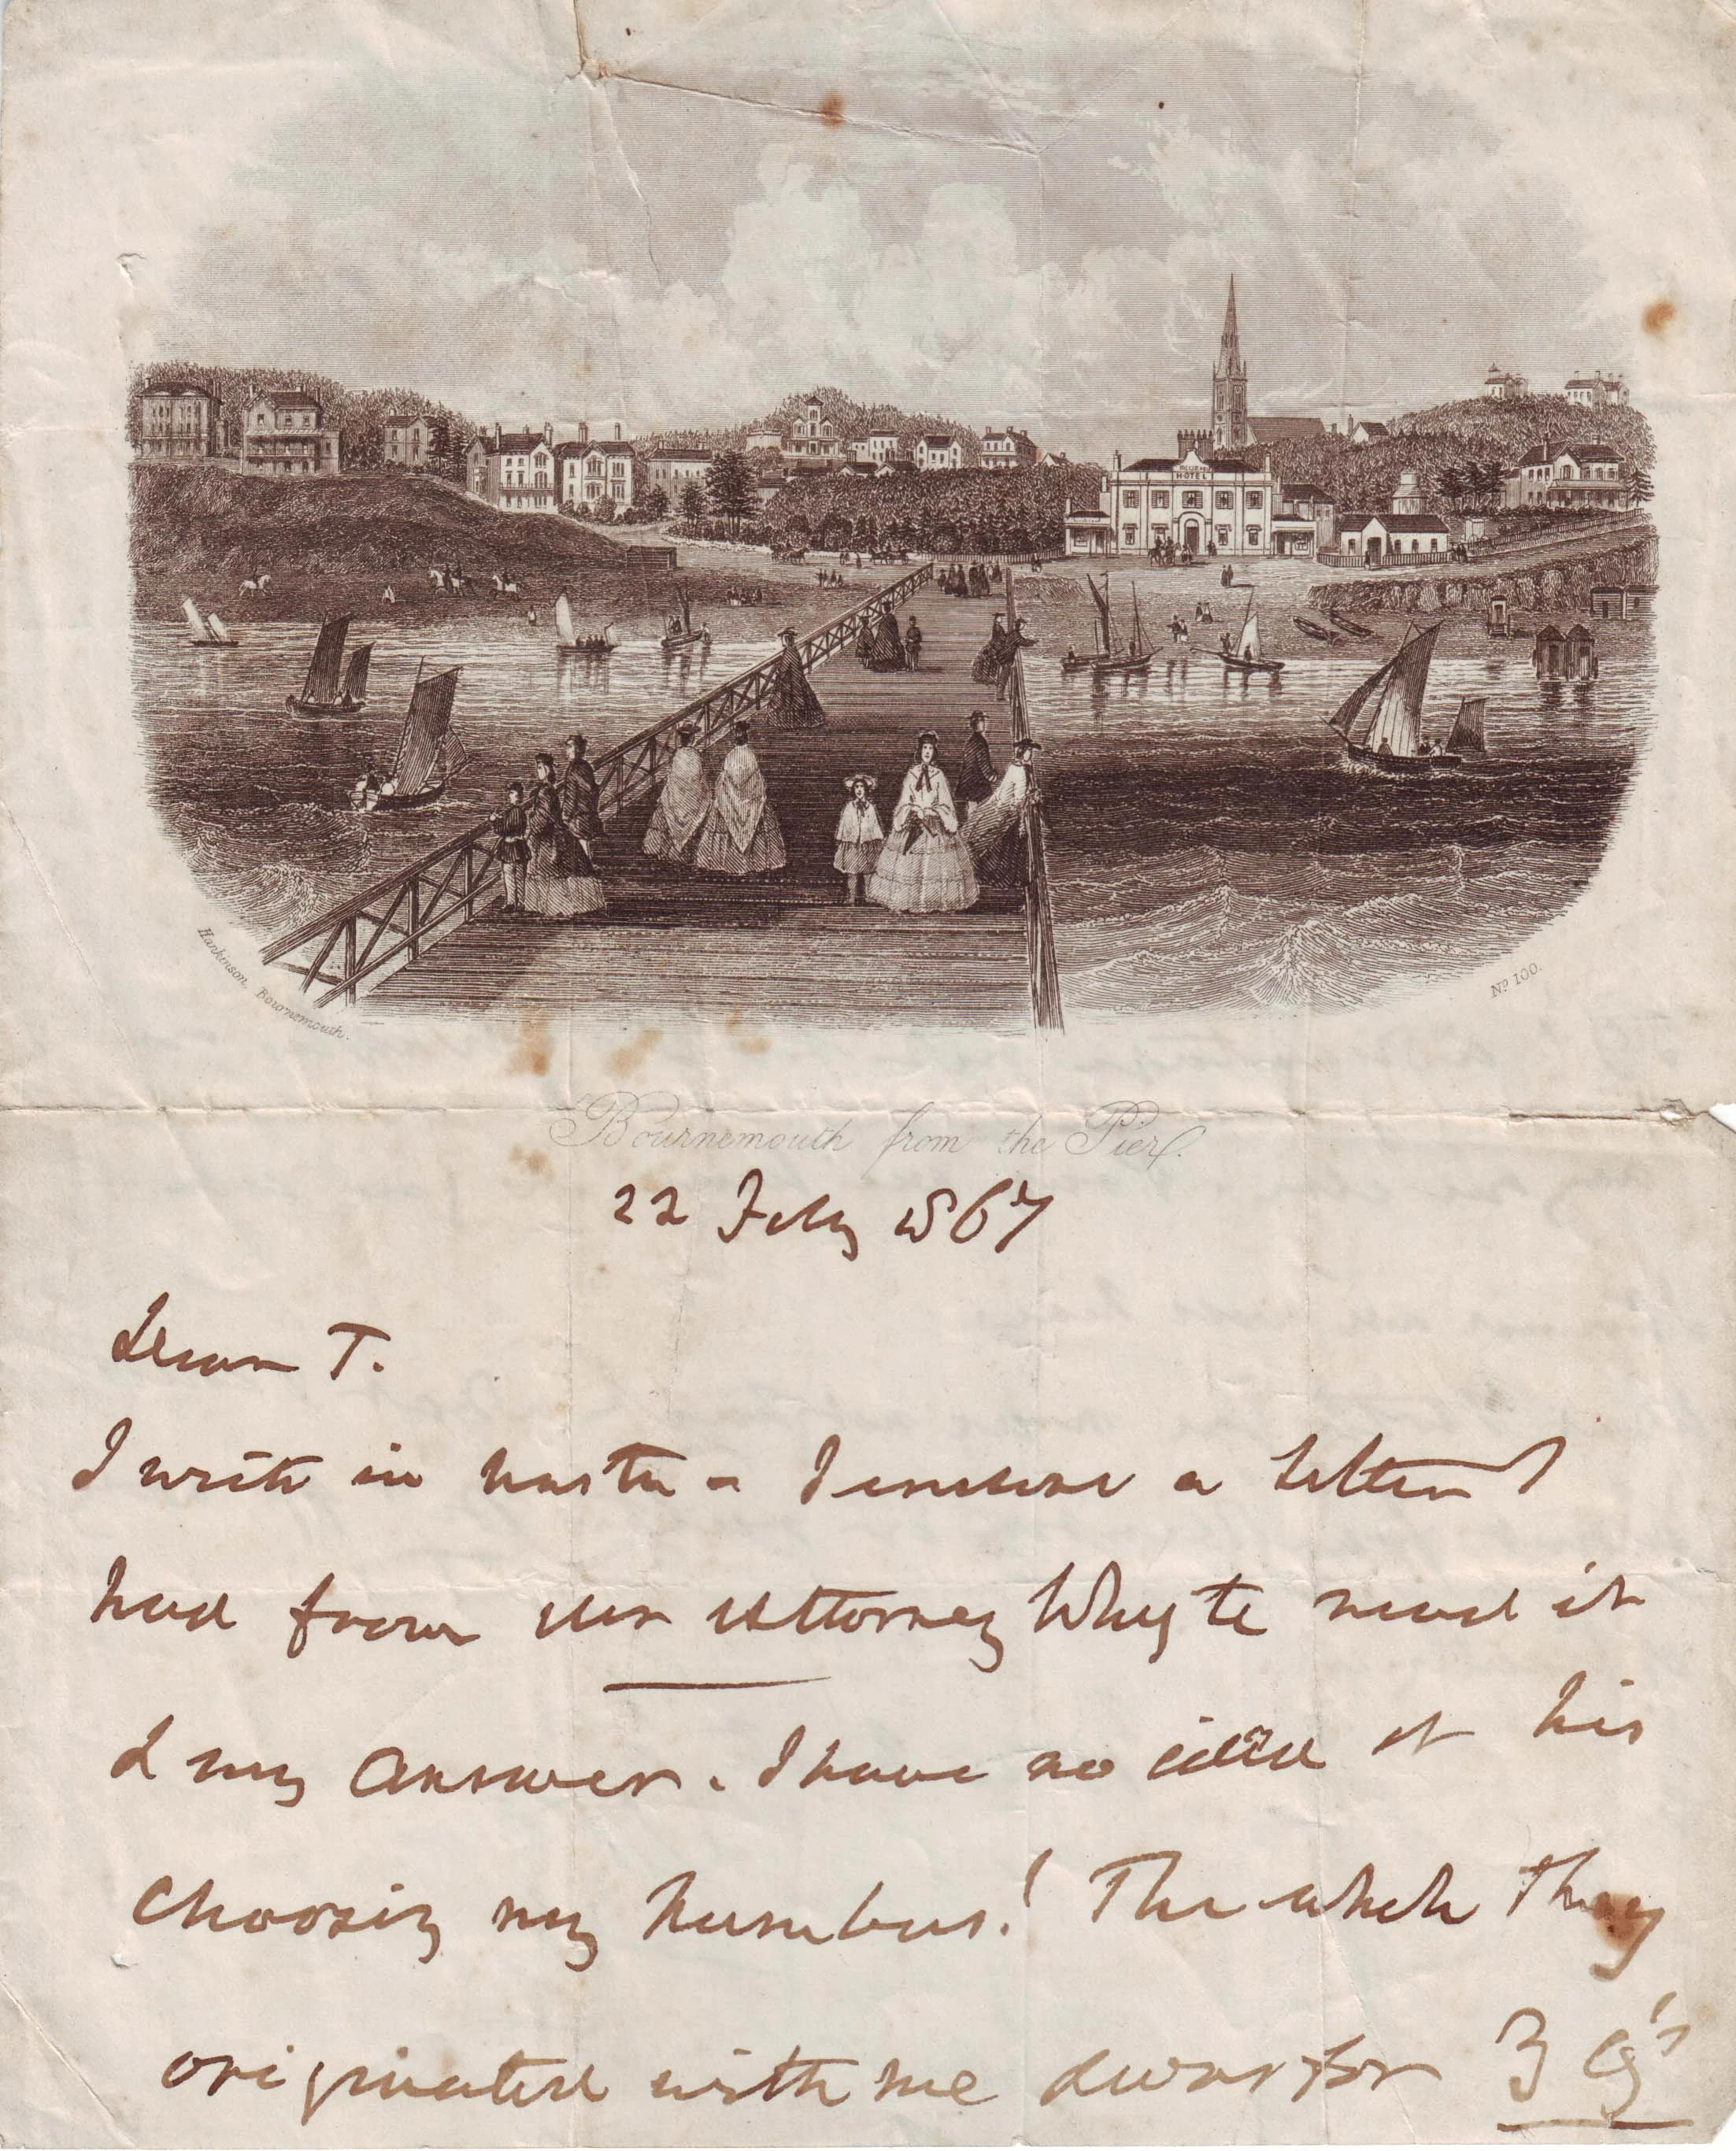 HOTEL
Hankinson, Bournemouth.
No 100.
Bournemouth from the Pier.
22 July 1867
Dear T.
I write in haste - I enclose a letter I
had from the Attorney Whyte read it
& my answer. I have no idea of his
choosing my number! The whole thing
originated with me & was for 3 Gs